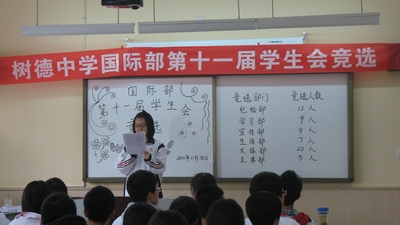 树德中学国际部第十一届学生会竞选
国际部
第十一届学生会
竞选
竞选部门 竞选人数
纪检部 12人
学习部 9人
宣传部 9人
生活部 7人
文体部 10人
主席部 5人